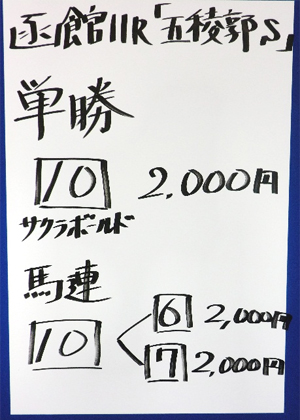 函館11R「五稜郭S」
単勝
10 2,000円
サクラボールド
馬連
6 2,000円
10
7 2,000円